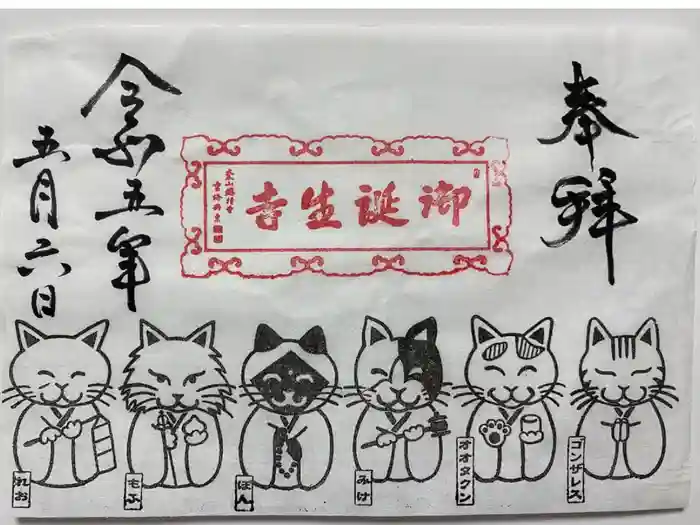 奉拝
御誕生寺
令和五年
五月六日
れお
もふ
ぽん
みけ
オオタクン
ゴンザレス